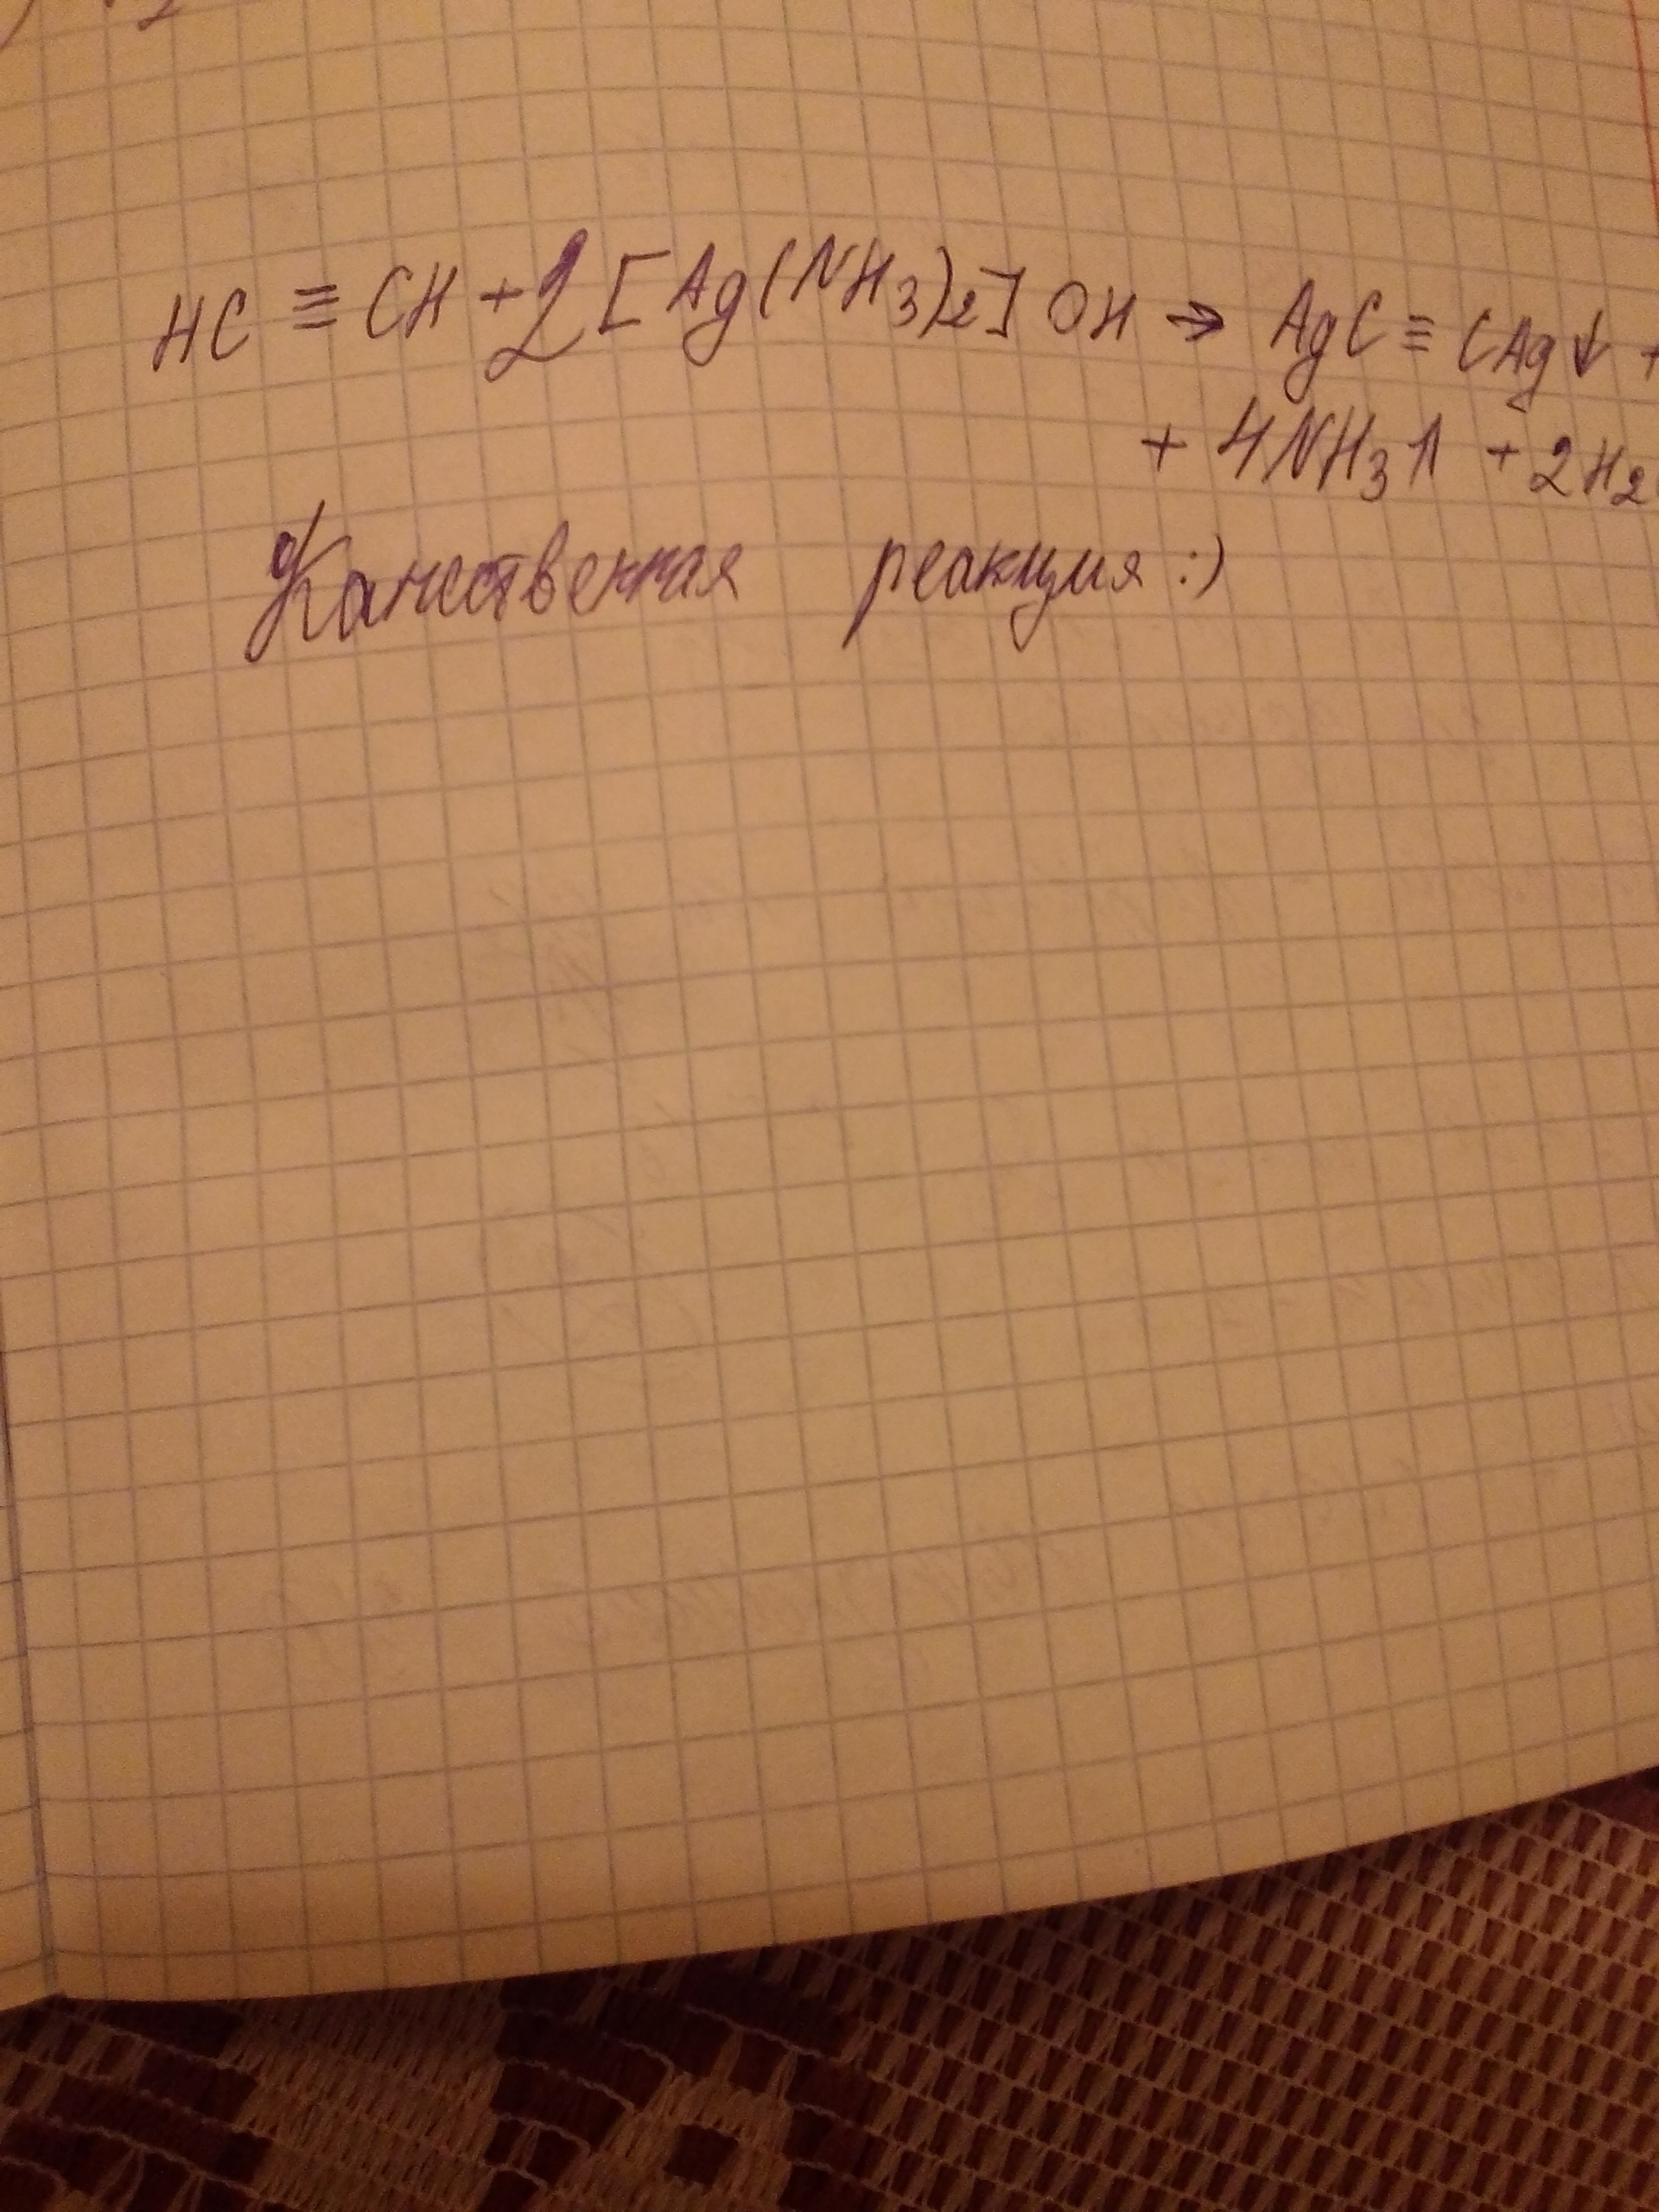 HC ≡ CH + 2 [Ag(NH3)2] OH → AgC ≡ CAg↓ +
+ 4NH3↑ + 2H2
Качественная реакция :)